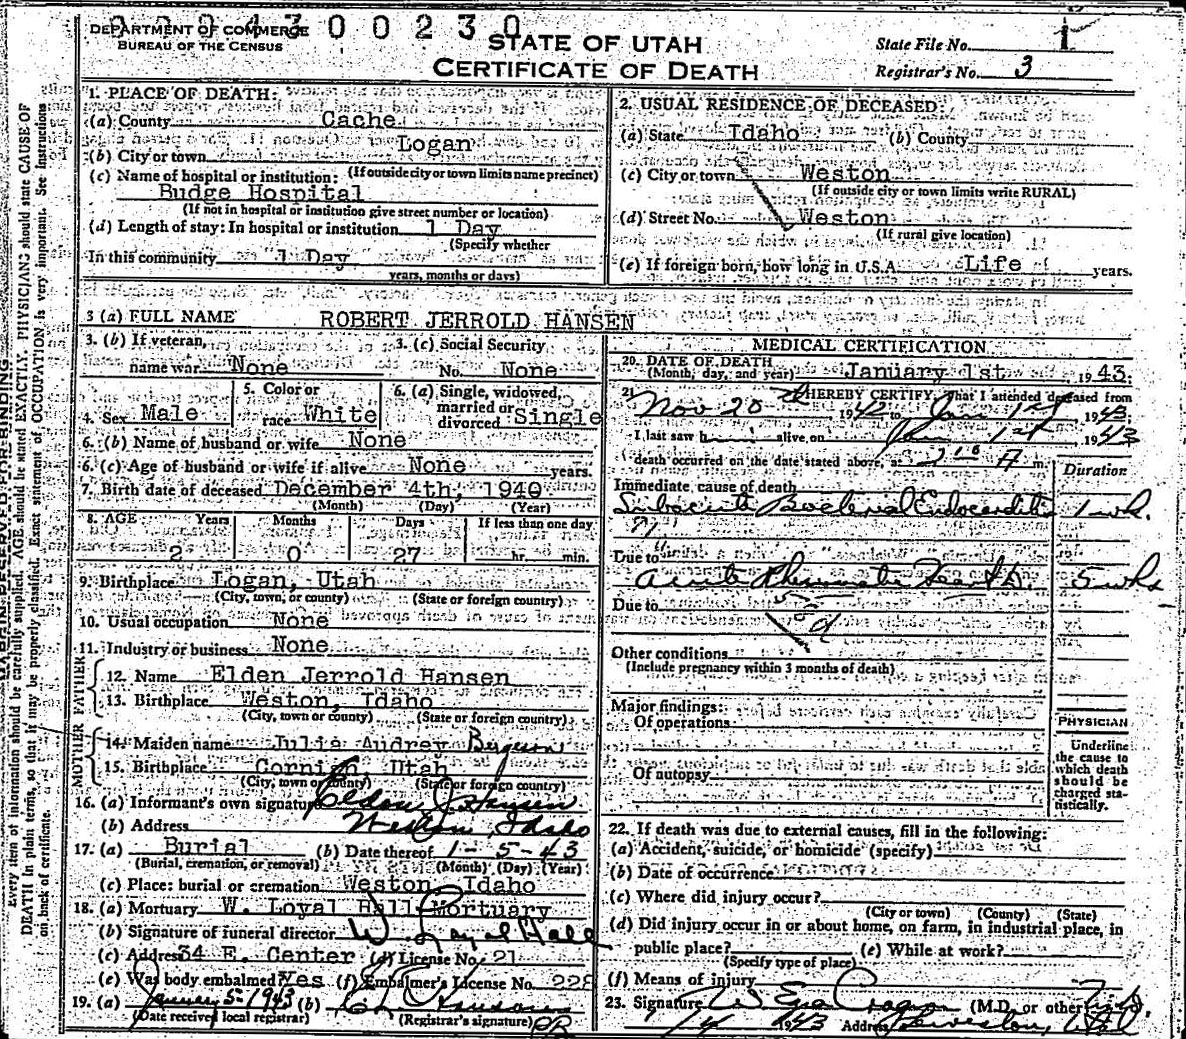 DEPARTMENT OF COMMERCE
BUREAU OF THE CENSUS
0 0 2 3 0
STATE OF UTAH
CERTIFICATE OF DEATH
State File No. 1
Registrar's No. 3
1. PLACE OF DEATH:
(a) County Cache
(b) City or town Logan
(If outside city or town limits name precinct)
(c) Name of hospital or institution:
Budge Hospital
(If not in hospital or institution give street number or location)
(d) Length of stay: In hospital or institution 1 Day
(Specify whether
In this community 1 Day
years, months or days)
2. USUAL RESIDENCE OF DECEASED:
(a) State Idaho (b) County
(c) City or town Weston
(If outside city or town limits write RURAL)
(d) Street No. Weston
(If rural give location)
(e) If foreign born, how long in U.S.A. Life years.
3 (a) FULL NAME ROBERT JERROLD HANSEN
3. (b) If veteran, name war None
3. (c) Social Security No. None
4. Sex Male
5. Color or race White
6. (a) Single, widowed, married or divorced Single
6. (b) Name of husband or wife None
6. (c) Age of husband or wife if alive None years.
7. Birth date of deceased December 4th, 1940
(Month) (Day) (Year)
8. AGE Years Months Days If less than one day
2 0 27 hr. min.
9. Birthplace Logan, Utah
(City, town, or county) (State or foreign country)
10. Usual occupation None
11. Industry or business None
FATHER
12. Name Elden Jerrold Hansen
13. Birthplace Weston, Idaho
(City, town or county) (State or foreign country)
MOTHER
14. Maiden name Julia Audrey Bergeson
15. Birthplace Cornish, Utah
(City, town or county) (State or foreign country)
16. (a) Informant's own signature Eldon J Hansen
(b) Address Weston, Idaho
17. (a) Burial (b) Date thereof 1-5-43
(Burial, cremation, or removal) (Month) (Day) (Year)
(c) Place: burial or cremation Weston, Idaho
18. (a) Mortuary W. Loyal Hall Mortuary
(b) Signature of funeral director W. Loyal Hall
(c) Address 34 E. Center (d) License No. 21
(e) Was body embalmed? Yes (f) Embalmer's License No. 228
19. (a) January 5-1943 (b)
(Date received local registrar) (Registrar's signature)
MEDICAL CERTIFICATION
20. DATE OF DEATH (Month, day, and year) January 1st 1943.
21. I HEREBY CERTIFY, That I attended deceased from
Nov 20 1942 to Jan 1st 1943
I last saw h alive on Jan 1st 1943
death occurred on the date stated above, at 2 10 A m.
Duration
Immediate cause of death
Subacute Bacterial Endocarditis 1 wk.
Due to
Acute Rheumatic Heart D. 5 wks
Due to
Other conditions
(Include pregnancy within 3 months of death)
Major findings:
Of operations
Of autopsy
PHYSICIAN
Underline the cause to which death should be charged statistically.
22. If death was due to external causes, fill in the following:
(a) Accident, suicide, or homicide (specify)
(b) Date of occurrence
(c) Where did injury occur?
(City or town) (County) (State)
(d) Did injury occur in or about home, on farm, in industrial place, in
public place? (e) While at work?
(Specify type of place)
(f) Means of injury
23. Signature W Ezra Cragun (M.D. or other)
1/4 1943 Address Lewiston, Utah
MARGIN RESERVED FOR BINDING
Every item of information should be carefully supplied. AGE should be stated EXACTLY. PHYSICIANS should state CAUSE OF
DEATH in plain terms, so that it may be properly classified. Exact statement of OCCUPATION is very important. See Instructions
on back of certificate.